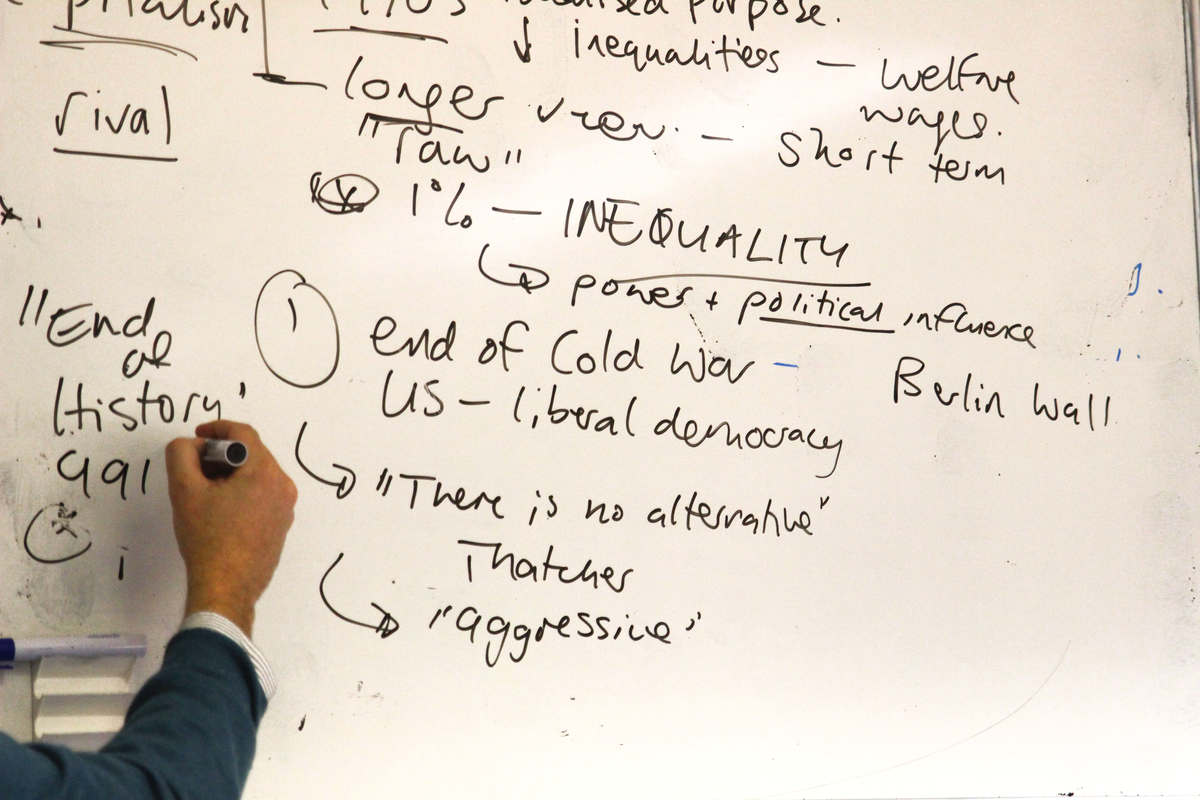 purpose.
↓ inequalities — welfare
wages.
rival
longer view. — short term
"raw"
* 1% — INEQUALITY
power + political influence
"End
of
History'
991
*
i
1
end of Cold War – Berlin Wall
US – liberal democracy
"There is no alternative"
Thatcher
"aggressive"